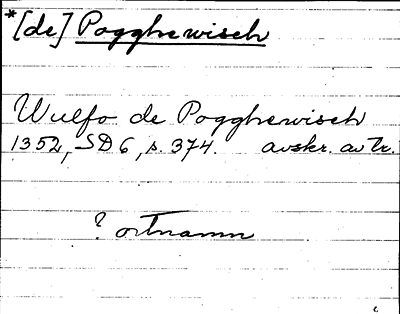 *[de] Pogghewisch
Wulfo de Pogghewisch
1352, SD 6, s. 374. avskr. av tr.
? ortnamn